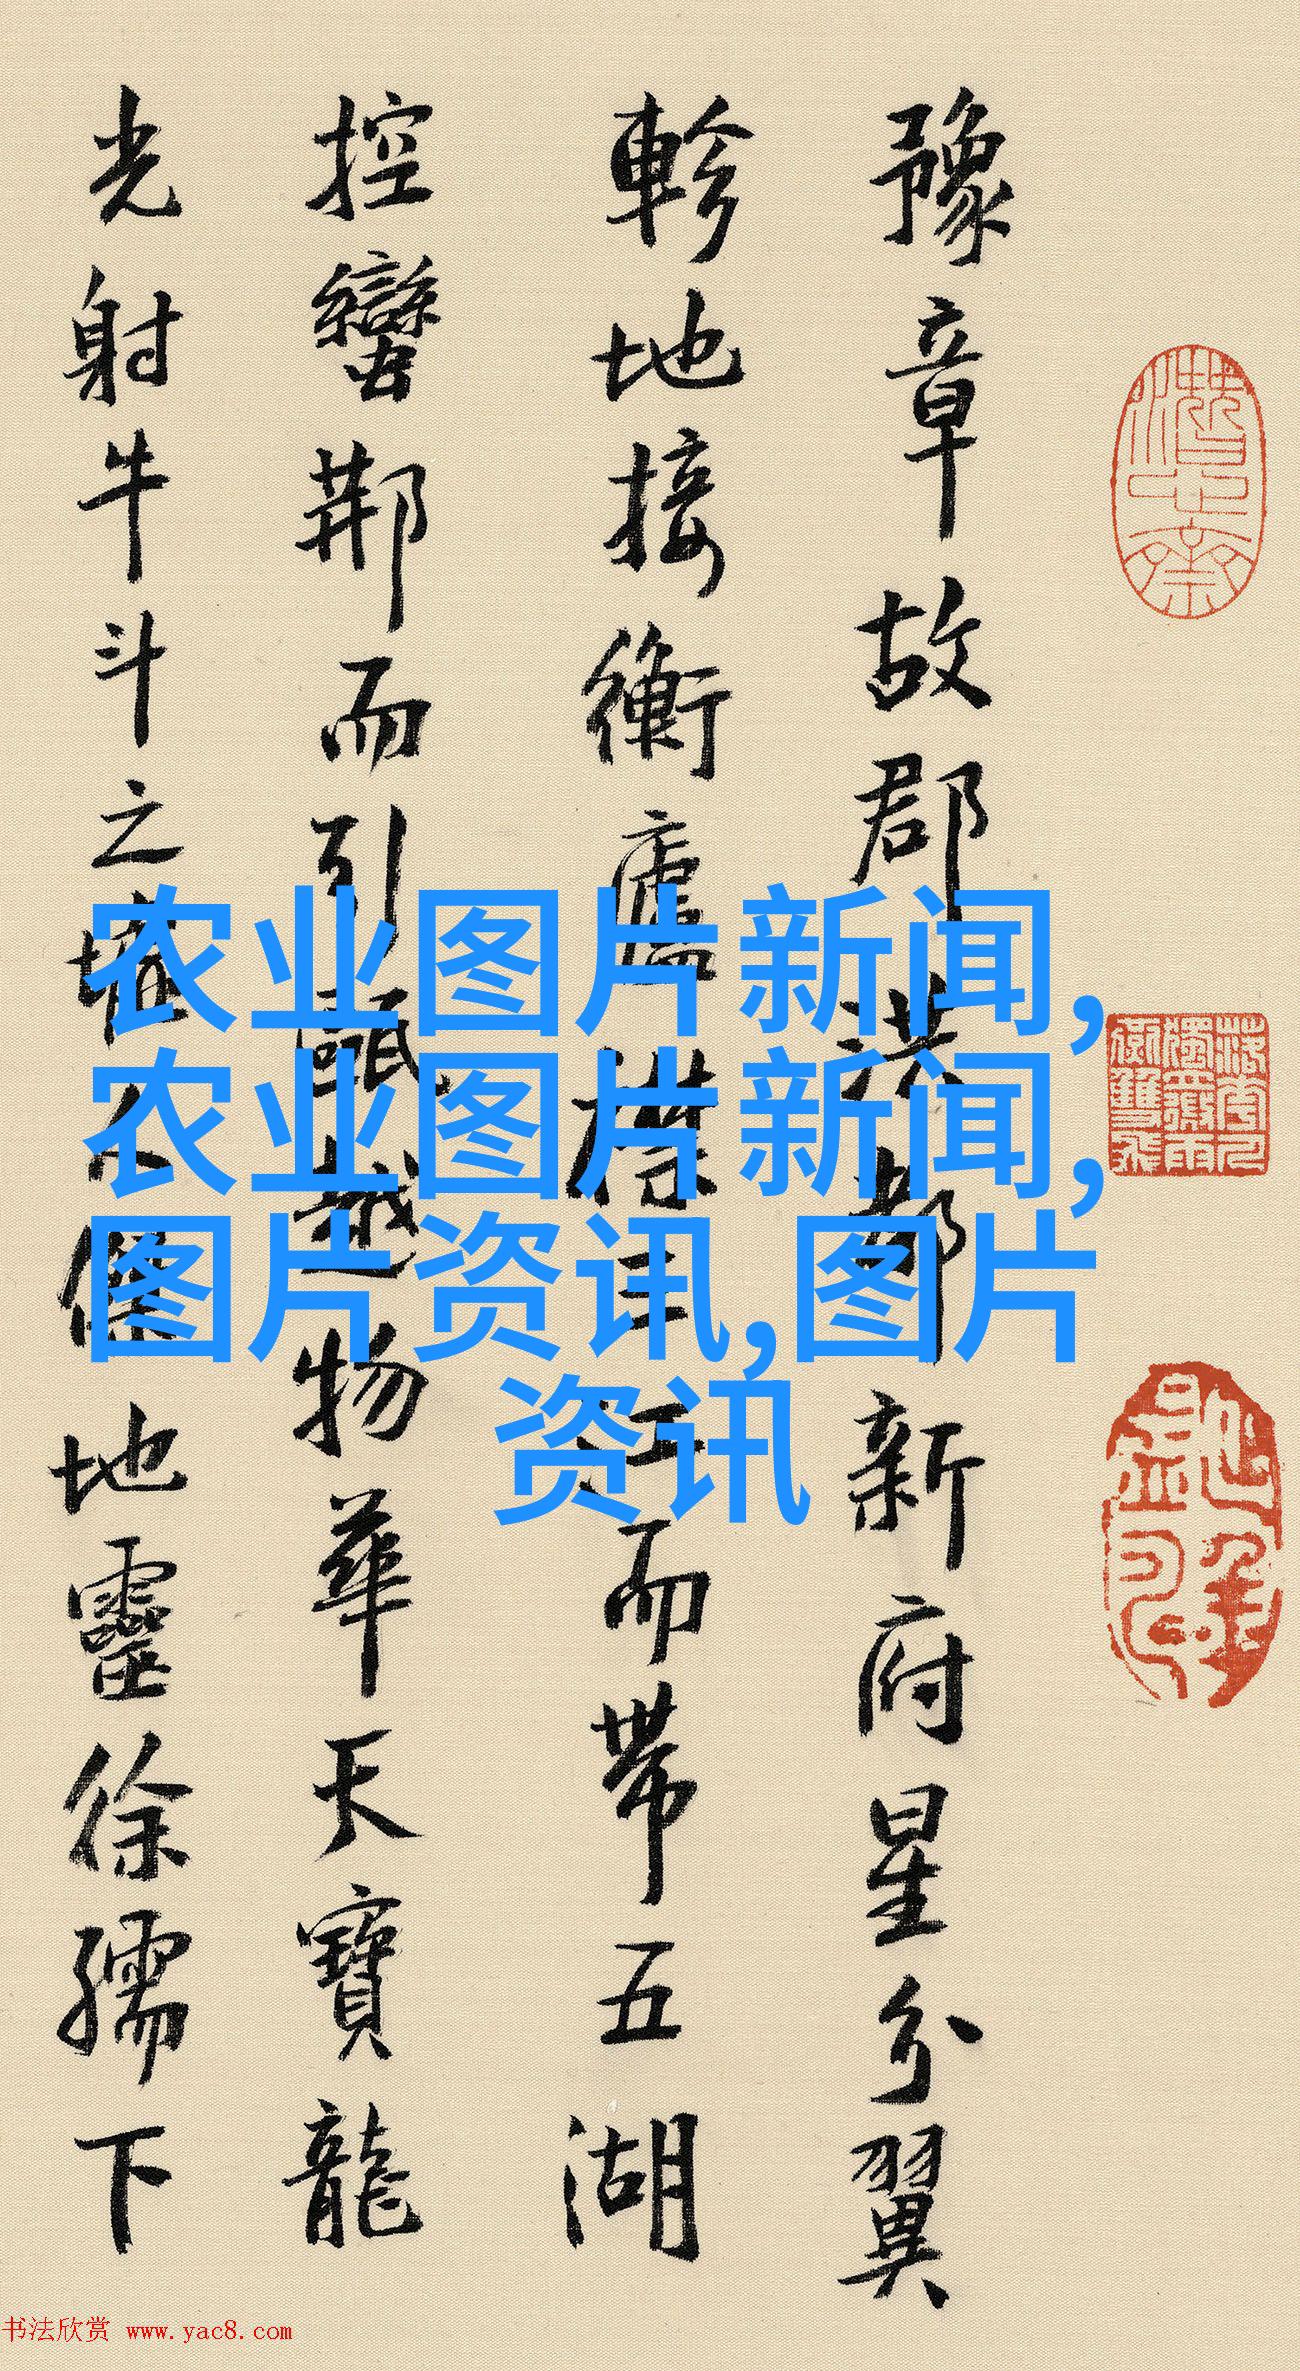 豫章故郡洪都新府星分翼
軫地接衡廬襟三江而帶五湖
控蠻荆而引甌越物華天寶龍
光射牛斗之墟人傑地靈徐孺下
农业图片新闻,
农业图片新闻,
图片资讯,图片
资讯
书法欣赏 www.yac8.com